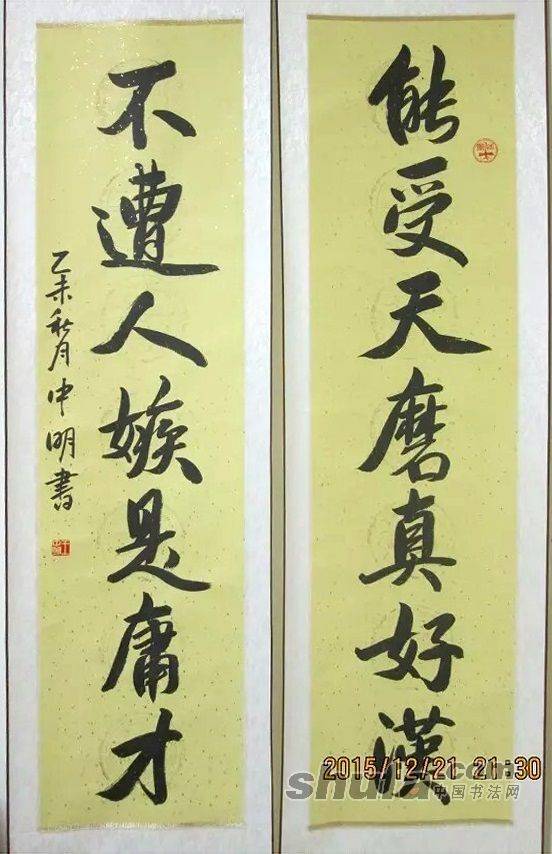 能受天磨真好漢
不遭人嫉是庸才
乙未秋月中明書
2015/12/21 21:30
shufa.com
中国书法网